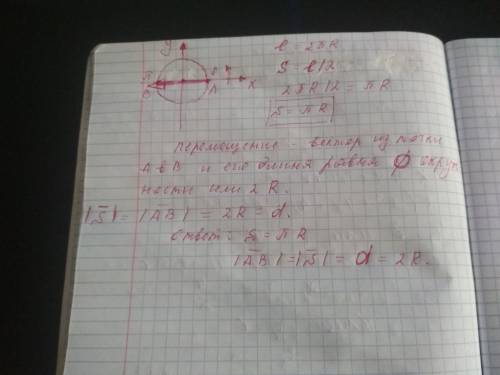 y
x
A
B
l = 2πR
S = l/2
2πR/2 = πR
S = πR
Перемещение - вектор из точки
A в B и его длина равна ∅ окруж
ности или 2R.
|S̅| = |A̅B̅| = 2R = d.
Ответ: S = πR
|A̅B̅| = |S̅| = d = 2R.